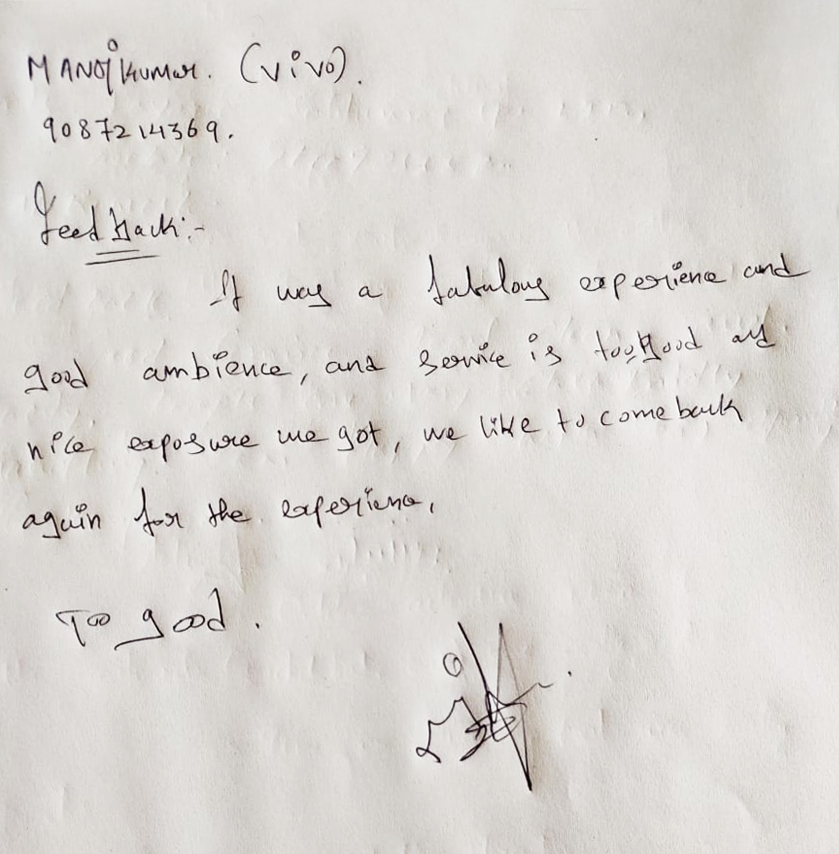 MANOjkumar. (vivo).
9087214369.
Feedback:-
It was a fabulous experience and
good ambience, and service is too good and
nice exposure we got, we like to come back
again for the experience,
Too good.